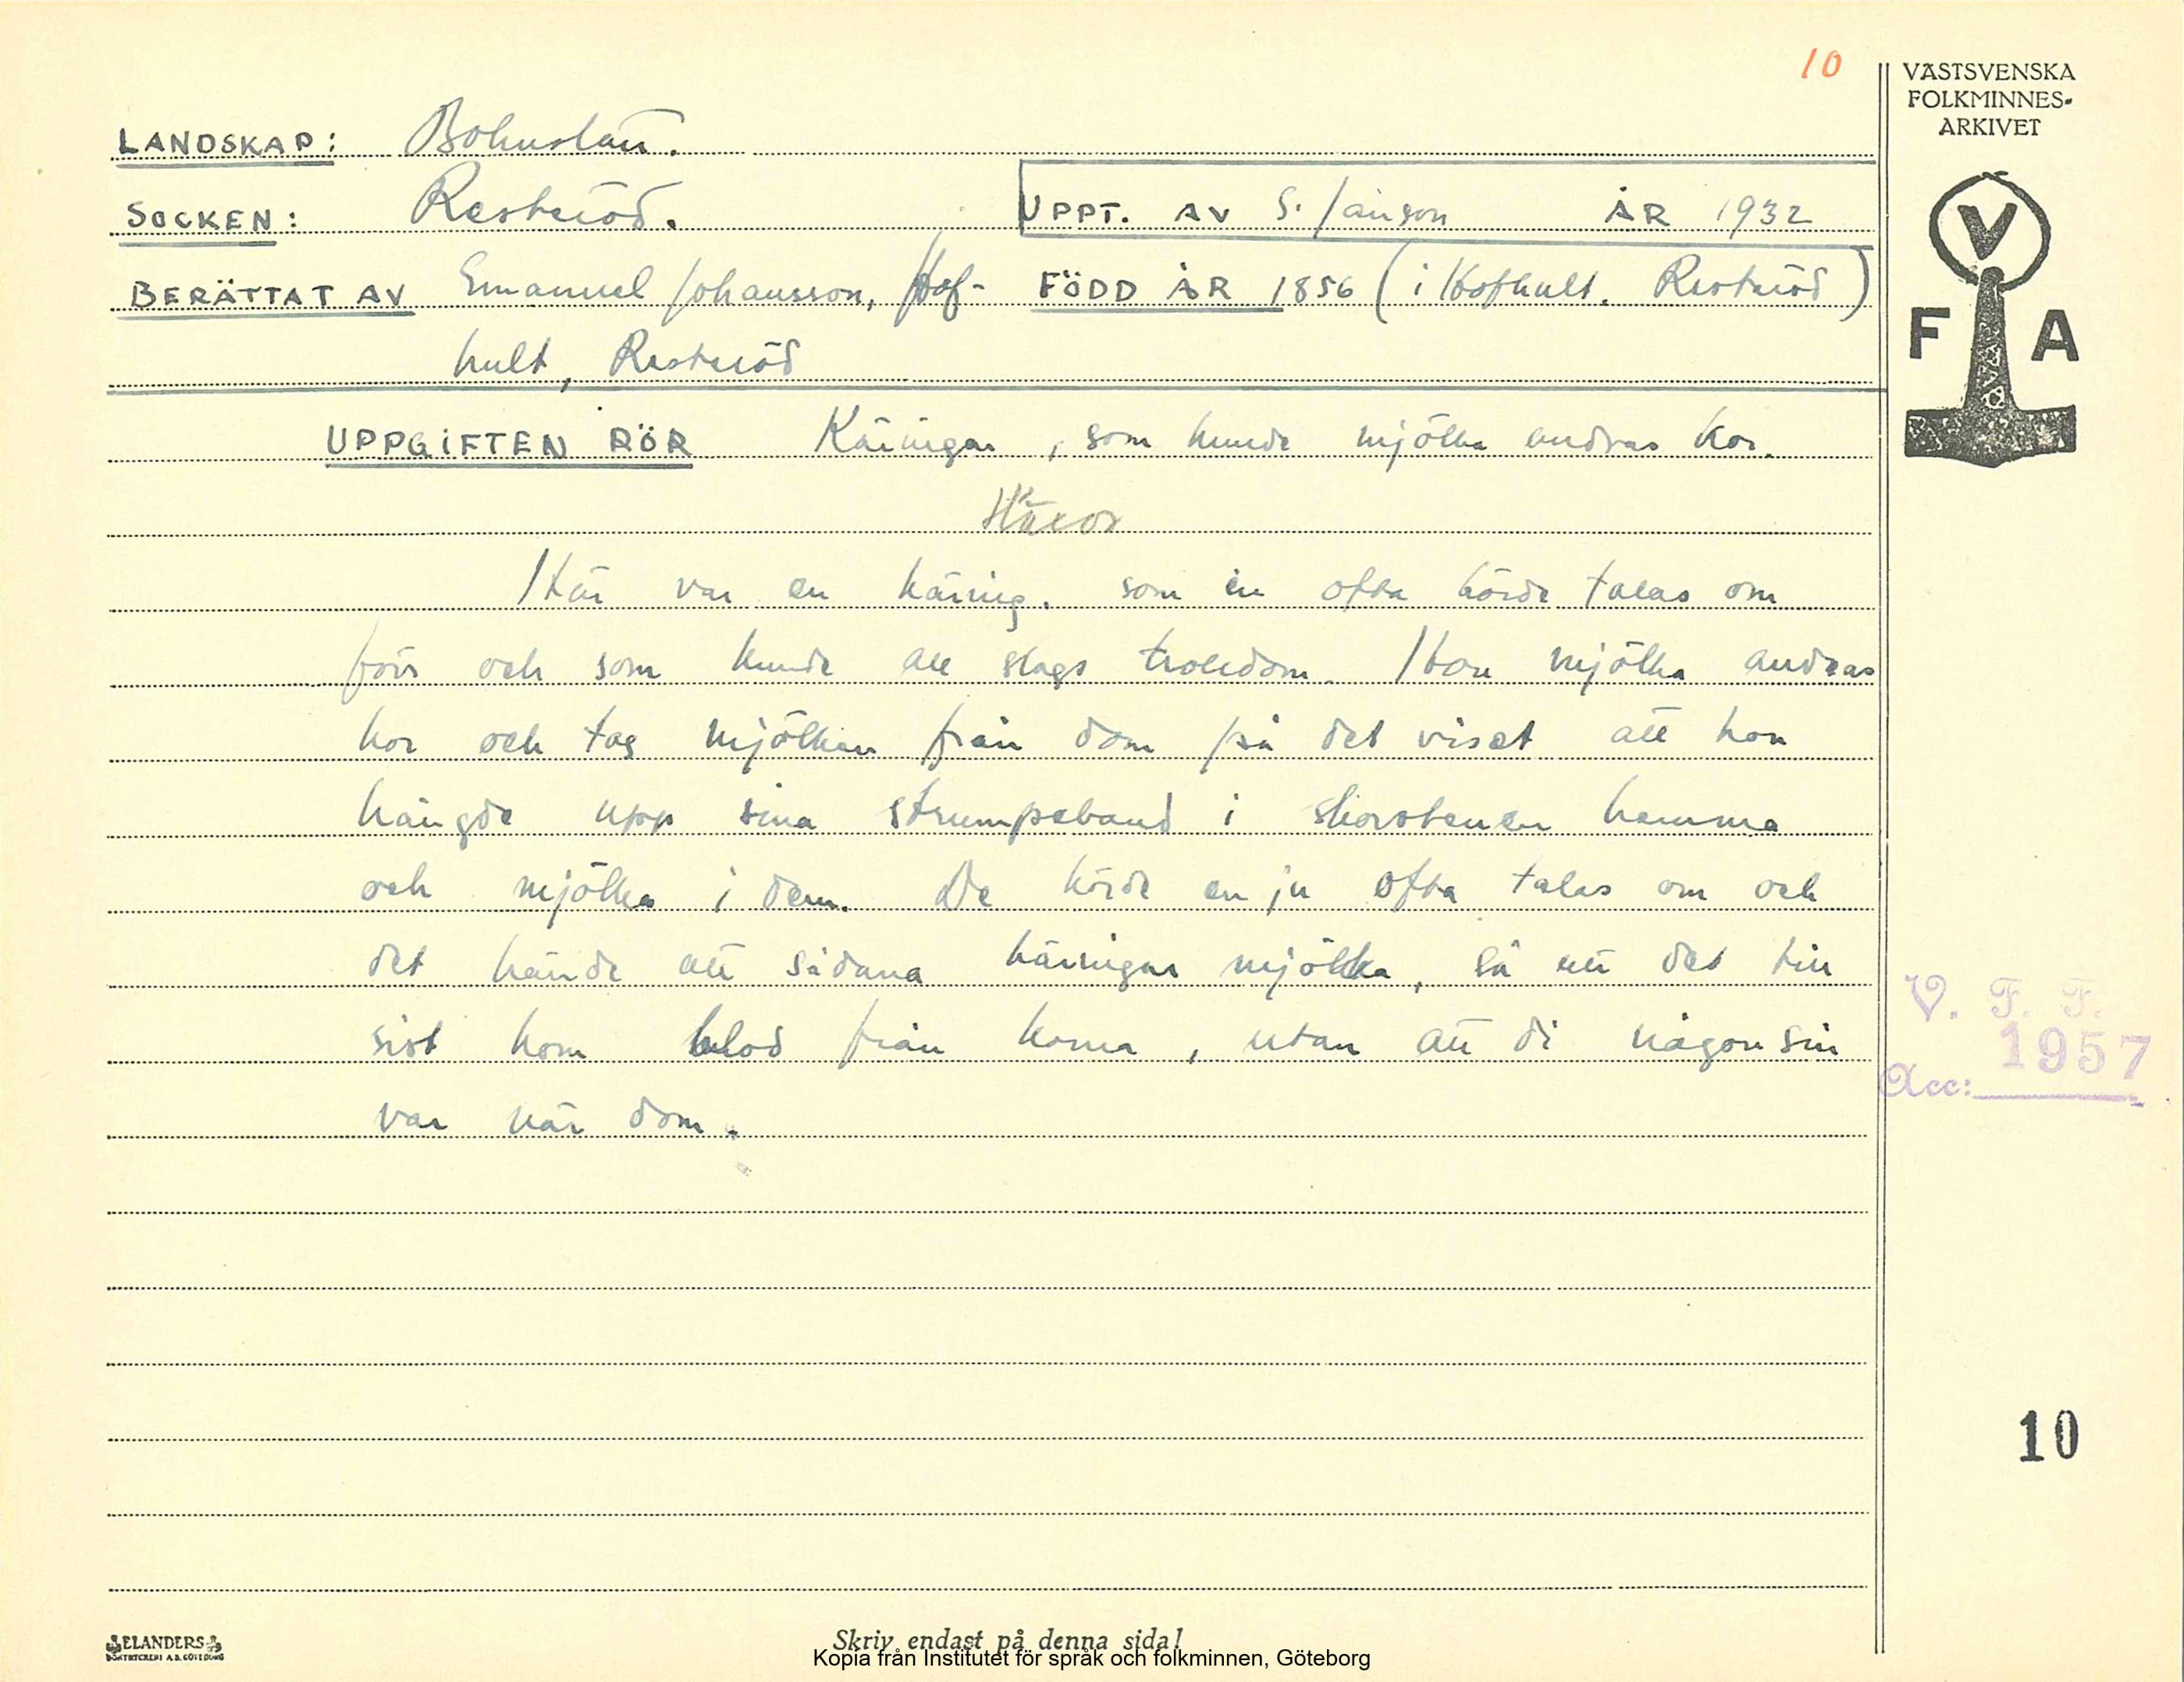 10
VÄSTSVENSKA
FOLKMINNES-
ARKIVET
LANDSKAP: Bohuslän.
SOCKEN: Resteröd.
UPPT. AV S. Janson ÅR 1932
BERÄTTAT AV Emanuel Johansson, Hof-
hult, Resteröd
FÖDD ÅR 1856 (i Hofhult. Resteröd)
V
F A
UPPGIFTEN RÖR Käringar, som kunde mjölka andras kor.
Häxor
Här var en käring. som en ofta hörde talas om
förr och som kunde all slags trolldom. Hon mjölka andras
kor och tag mjölken från dom på det viset att hon
hängde upp sina strumpeband i skorstenen hemma
och mjölka i dem. De hörde en ju ofta talas om och
det hände att sådana käringar mjölka, så att det till
sist kom blod från korna, utan att di någonsin
var när dom.
V. F. F.
1957
Acc:
10
ELANDERS
BOKTRYCKERI A.B. GÖTEBORG
Skriv endast på denna sida!
Kopia från Institutet för språk och folkminnen, Göteborg